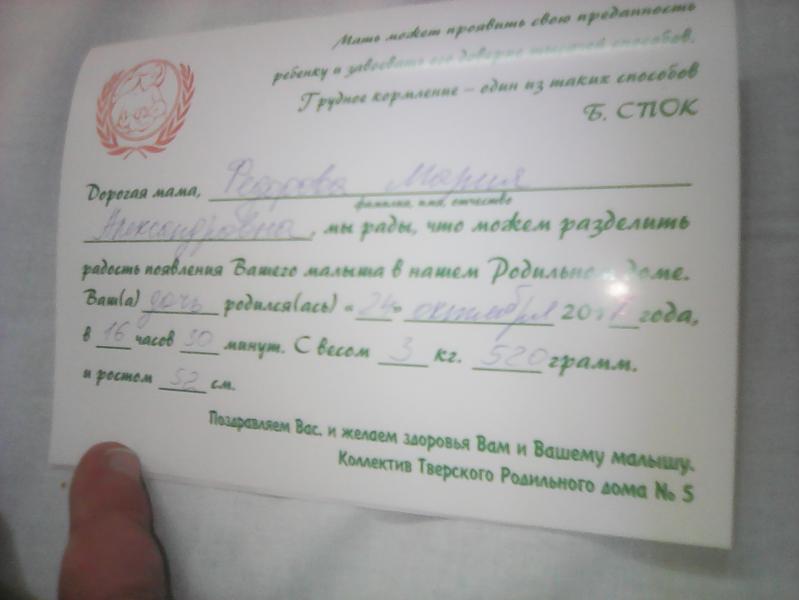 Мать может проявить свою преданность
ребенку и завоевать его доверие тысячей способов.
Грудное кормление – один из таких способов
Б. СПОК
Дорогая мама, Федорова Мария
фамилия, имя, отчество
Александровна, мы рады, что можем разделить
радость появления Вашего малыша в нашем Родильном доме.
Ваш(а) дочь родился(ась) «24» октября 20 года,
в 16 часов 30 минут. С весом 3 кг. 520 грамм.
и ростом 52 см.
Поздравляем Вас, и желаем здоровья Вам и Вашему малышу.
Коллектив Тверского Родильного дома № 5